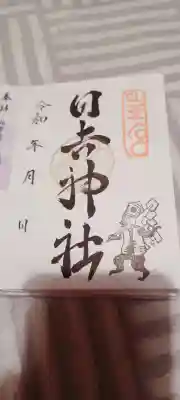 日吉神社
令和 年 月 日